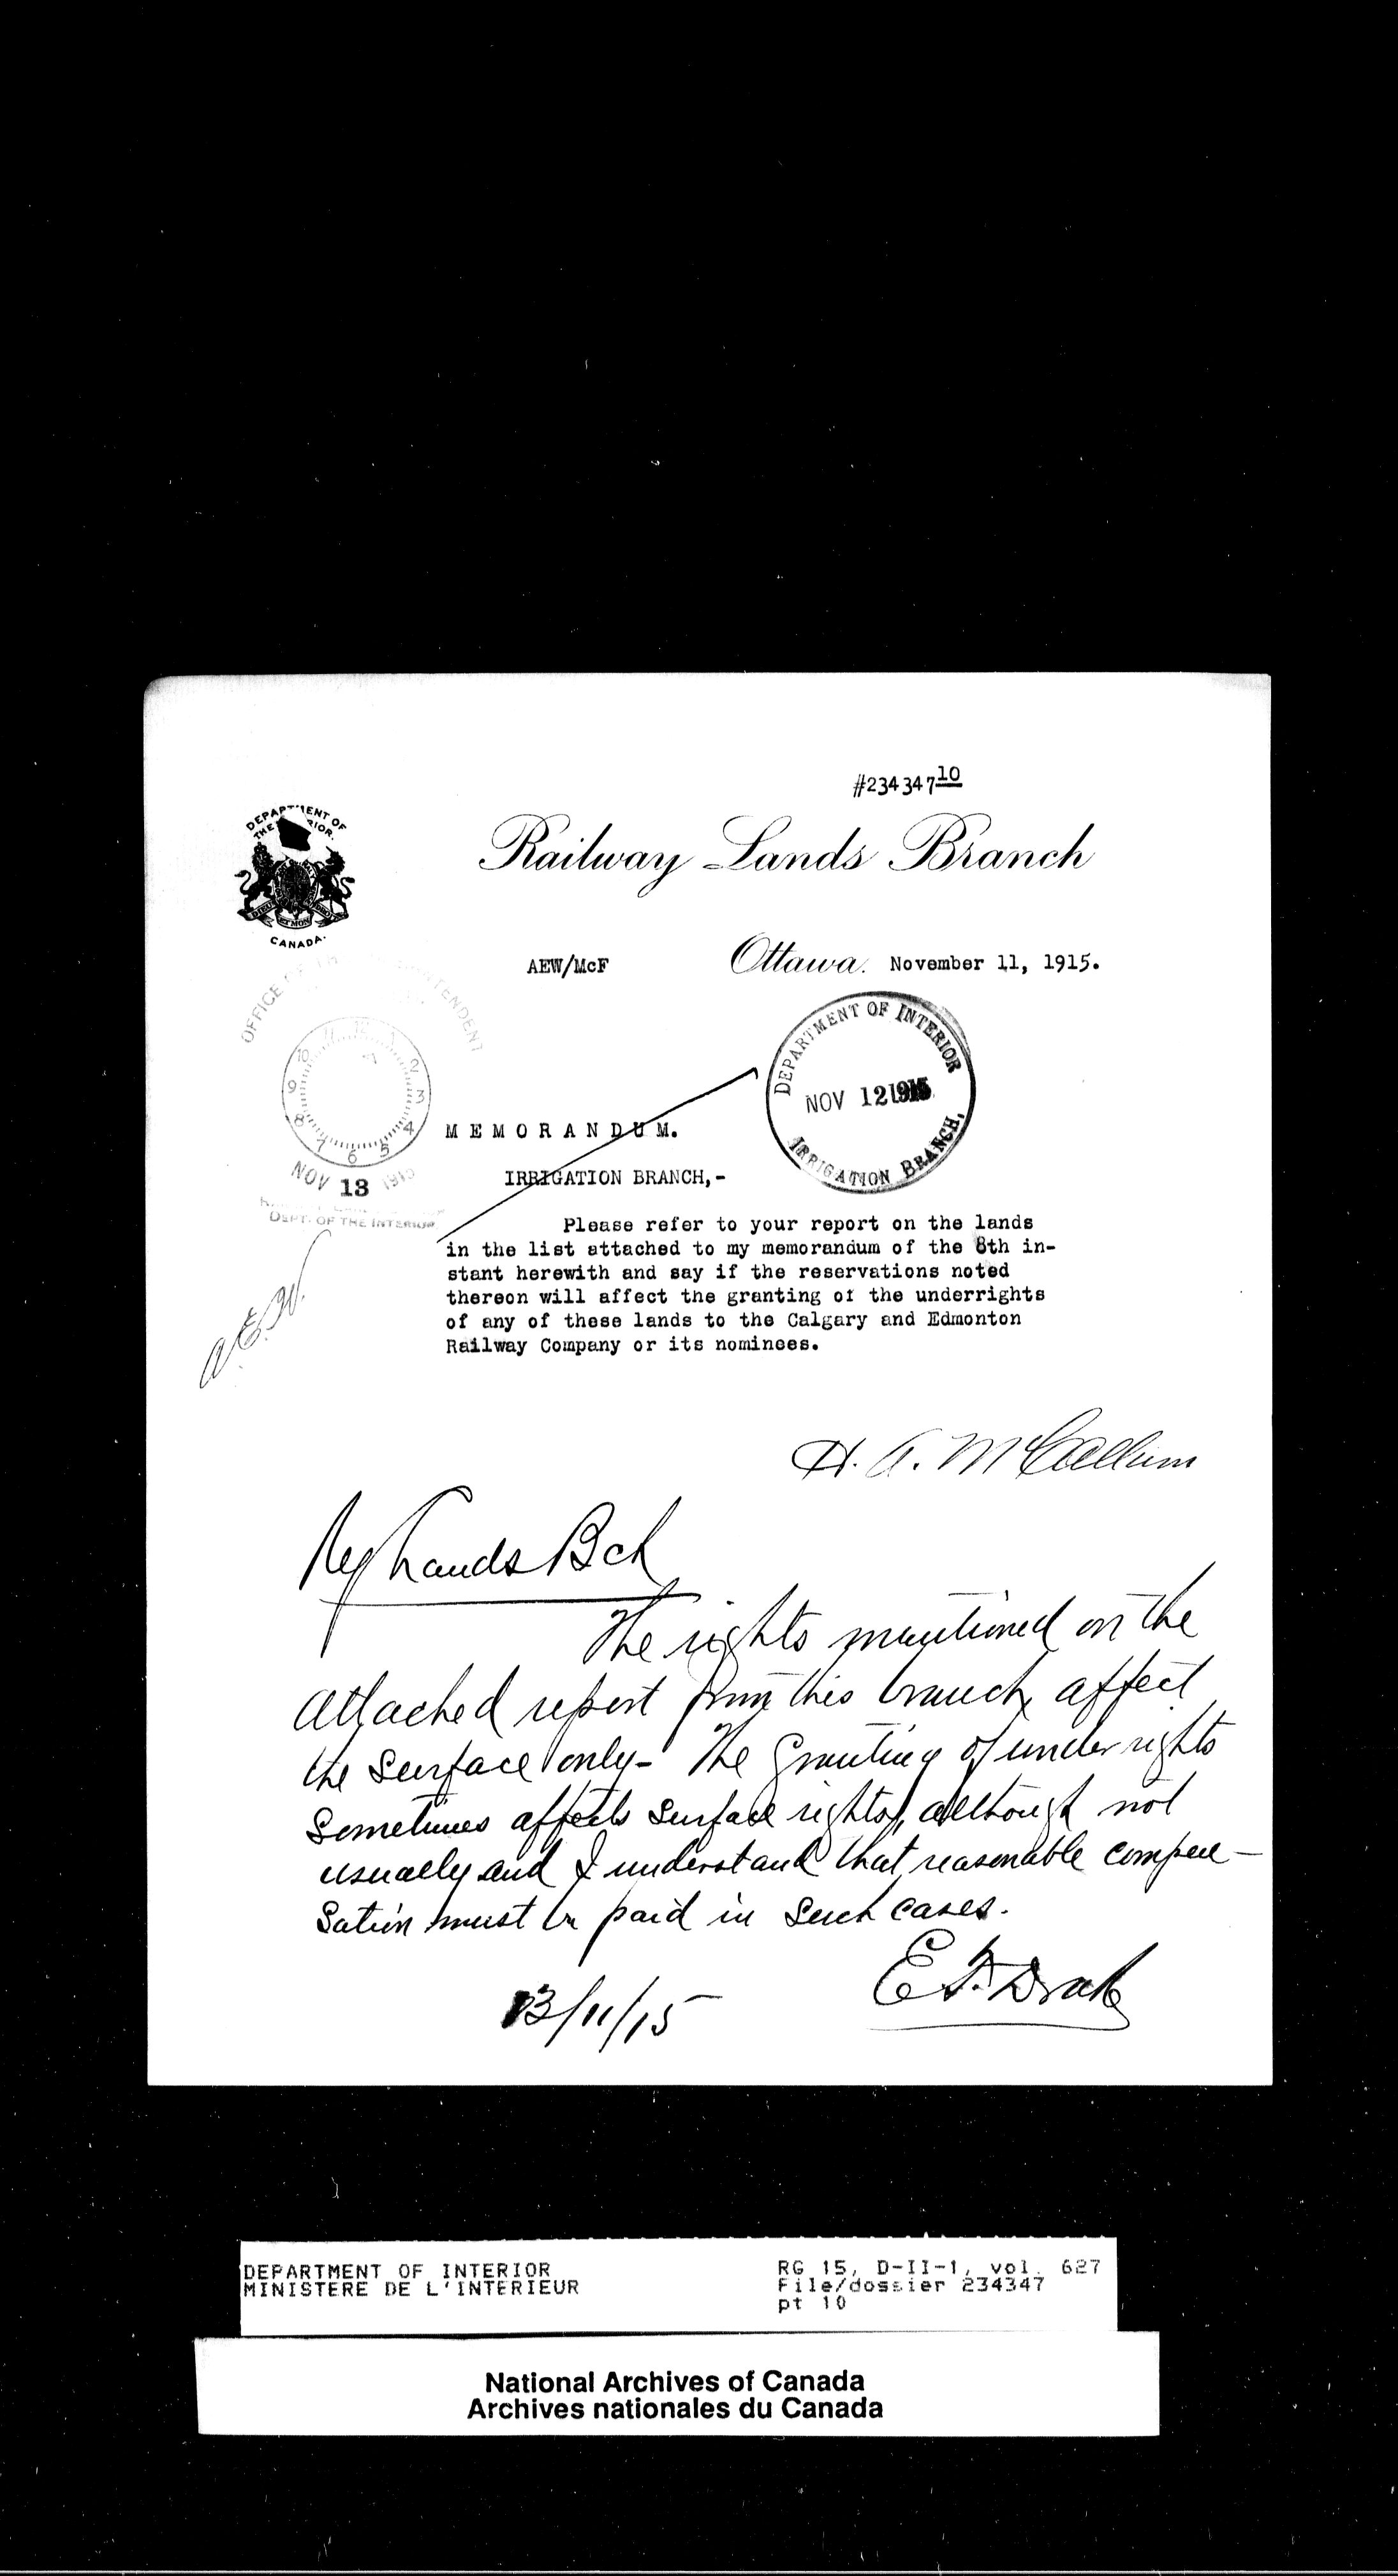 #234347 10
DEPARTMENT OF
THE INTERIOR.
DIEU ET MON DROIT
CANADA.
Railway Lands Branch
AEW/McF
Ottawa. November 11, 1915.
OFFICE
NOV 13 1915
DEPT. OF THE INTERIOR
DEPARTMENT OF INTERIOR
NOV 12 1915
IRRIGATION BRANCH,
MEMORANDUM.
IRRIGATION BRANCH,-
Please refer to your report on the lands
in the list attached to my memorandum of the 8th in-
stant herewith and say if the reservations noted
thereon will affect the granting of the underrights
of any of these lands to the Calgary and Edmonton
Railway Company or its nominees.
A.E.W.
H. A. McCallum
Ry Lands Bch
The rights mentioned on the
attached report from this branch affect
the surface only - The granting of under rights
sometimes affects surface rights, although not
usually and I understand that reasonable compen-
sation must be paid in such cases.
E F. Drake
13/11/15
DEPARTMENT OF INTERIOR
MINISTERE DE L'INTERIEUR
RG 15, D-II-1, vol. 627
File/dossier 234347
pt 10
National Archives of Canada
Archives nationales du Canada